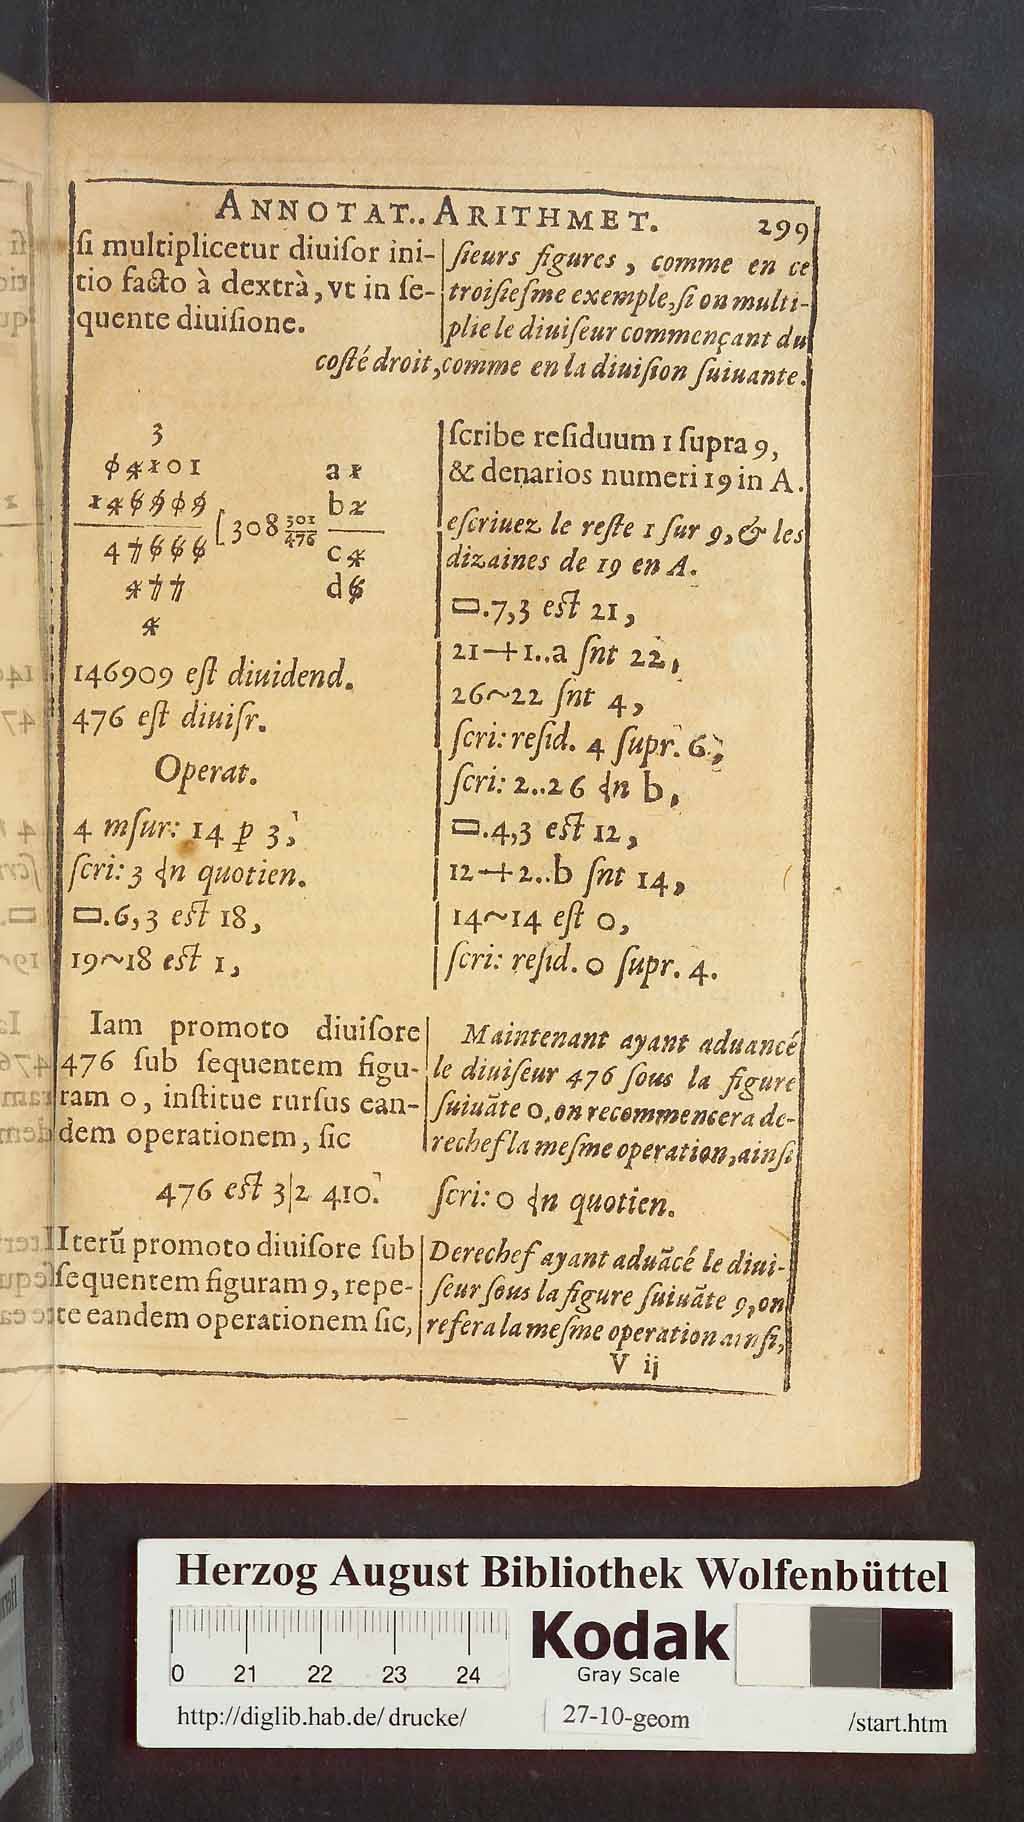 ANNOTAT.. ARITHMET. 299
ſi multiplicetur diuiſor ini-
tio facto à dextrà, vt in ſe-
quente diuiſione.
ſieurs figures, comme en ce
troiſieſme exemple, ſi on multi-
plie le diuiſeur commençant du
coſté droit, comme en la diuiſion ſuiuante.
3
0 4 1 0 1
1 4 6 9 0 9
[308 301/476
4 7 6 6 6
4 7 7
4
a 1
b 2
c 4
d 6
146909 eſt diuidend.
476 eſt diuiſr.
Operat.
4 mſur: 14 p 3,
ſcri: 3 in quotien.
▭.6,3 eſt 18,
19~18 eſt 1,
ſcribe reſiduum 1 ſupra 9,
& denarios numeri 19 in A.
eſcriuez le reſte 1 ſur 9, & les
dizaines de 19 en A.
▭.7,3 eſt 21,
21+1..a ſnt 22,
26~22 ſnt 4,
ſcri: reſid. 4 ſupr. 6,
ſcri: 2..26 in b,
▭.4,3 eſt 12,
12+2..b ſnt 14,
14~14 eſt 0,
ſcri: reſid. 0 ſupr. 4.
Iam promoto diuiſore
476 ſub ſequentem figu-
ram 0, inſtitue rurſus ean-
dem operationem, ſic
Maintenant ayant aduancé
le diuiſeur 476 ſous la figure
ſuiuãte 0, on recommencera de-
rechef la meſme operation, ainſi
476 eſt 3|2 410. ſcri: 0 in quotien.
Iterũ promoto diuiſore ſub
ſequentem figuram 9, repe-
te eandem operationem ſic,
Derechef ayant aduãcé le diui-
ſeur ſous la figure ſuiuãte 9, on
refera la meſme operation ainſi,
V ij
Herzog August Bibliothek Wolfenbüttel
0 21 22 23 24
Kodak
Gray Scale
http://diglib.hab.de/drucke/ 27-10-geom /start.htm